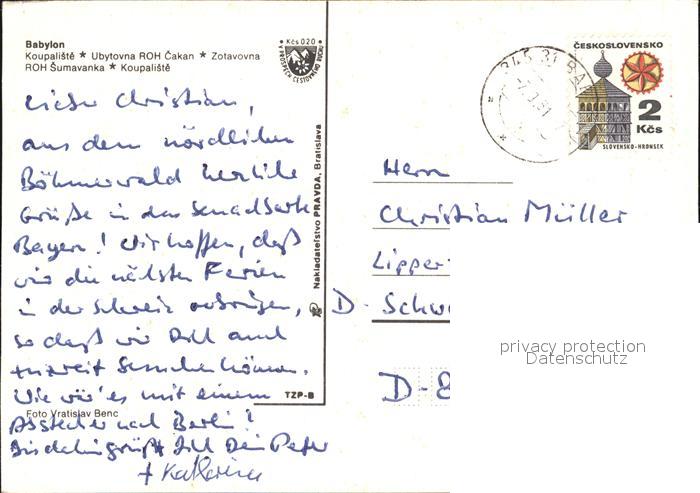 Babylon
Koupaliště ★ Ubytovna ROH Čakan ★ Zotavovna
ROH Šumavanka ★ Koupaliště
Kčs 0,20
VE PROSPĚCH CESTOVNÍHO RUCHU
Lieber Christian,
aus dem nördlichen
Böhmerwald herzliche
Grüße in das benachbarte
Bayern! Wir hoffen, daß
wir die nächsten Ferien
in der Schweiz verbringen,
so daß wir Dich auch
besuchen können.
Wie wär's mit einem
Abstecher nach Berlin?
grüßt Dich Dein Peter
+ Katharina
Foto Vratislav Benc
TZP-B
Nakladateľstvo PRAVDA, Bratislava
345 31 BA
ČESKOSLOVENSKO
2
Kčs
SLOVENSKO-HRONSEK
Herrn
Christian Müller
Lipper
D- Schw
D-8
privacy protection
Datenschutz